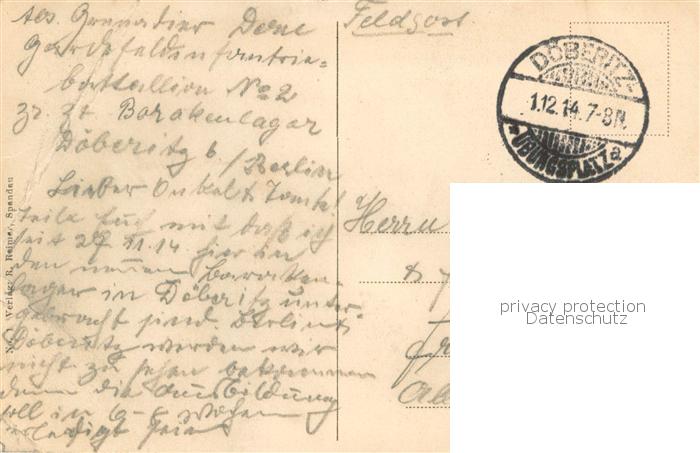 Abs. Grenadier
Gardefeldinfantrie=
battallion No 2
zr. Zt Barakenlager
Döberitz b/Berlin
Lieber Onkel & Tante!
teile Euch mit daß ich
seit 27.11.14 hier in
den neuen Baraken-
lager in Döberitz unter-
gebracht sind. Berlin &
Döberitz werden wir
nicht zu sehen bekommen
denn die Ausbildung
soll in 6-8 Wochen
erledigt sein
Verlag: R. Reimer, Spandau
Feldpost.
DÖBERITZ-
1.12.14.7-8N.
*ÜBUNGSPLATZ a
Herrn
privacy protection
Datenschutz